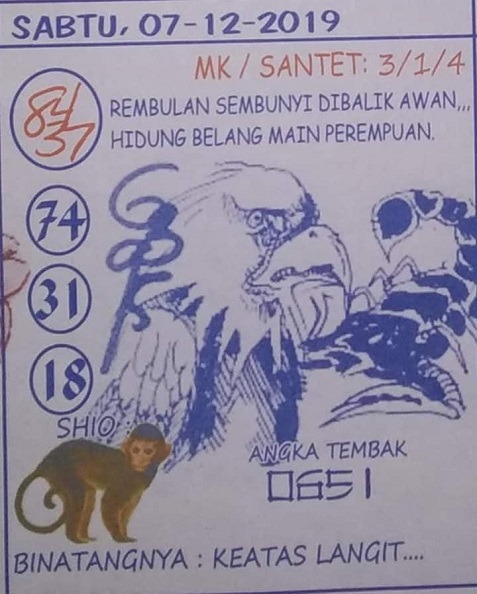 SABTU, 07-12-2019
MK / SANTET: 3/1/4
84
37
REMBULAN SEMBUNYI DIBALIK AWAN,,,
HIDUNG BELANG MAIN PEREMPUAN.
74
31
18
SHIO :
ANGKA TEMBAK
0651
BINATANGNYA : KEATAS LANGIT....